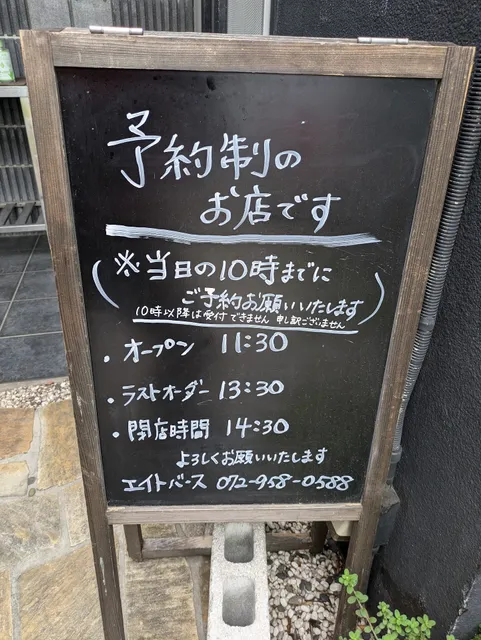 予約制の
お店です
※当日の10時までに
ご予約お願いいたします
10時以降は受付できません 申し訳ございません
・オープン 11:30
・ラストオーダー 13:30
・閉店時間 14:30
よろしくお願いいたします
エイトバース 072-958-0588